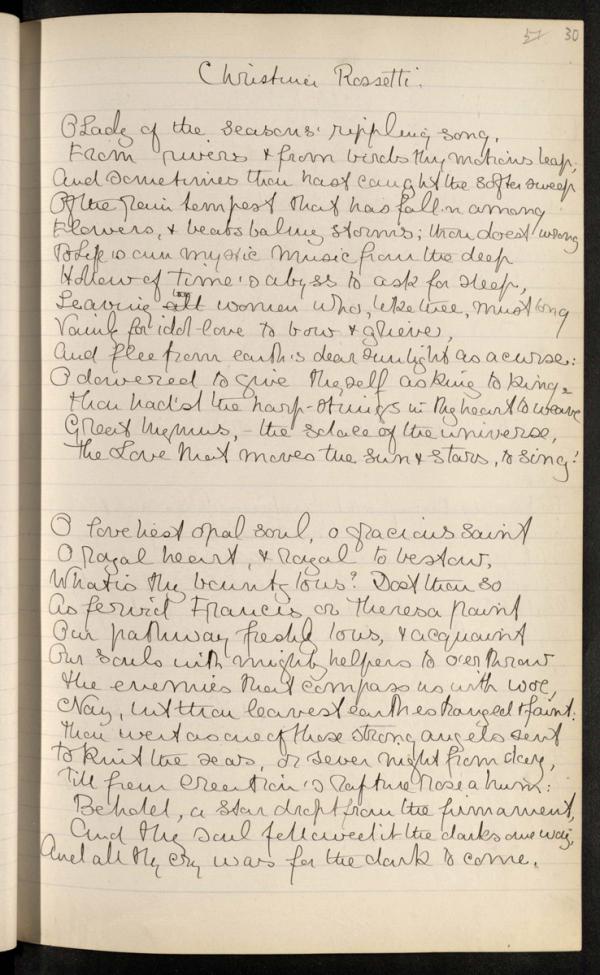 57 30
Christina Rossetti.
O Lady of the seasons' rippling song,
From rivers & from birds thy motions leap;
And sometimes thou hast caught the softer sweep
Of the rain tempest that has fall'n among
Flowers, & beats balmy storms; thou doest wrong
To Life's own mystic music from the deep
Hollow of time's abyss to ask for sleep,
Leaving all women who, like thee, must long
Vainly for idol-love to bow & grieve,
And flee from earth's dear sunlight as a curse:
O dowered to give thyself as king to king,
Thou had'st the harp-strings in thy heart to weave
Great hymns, – the solace of the universe,
The Love that moves the sun & stars, to sing!
O loveliest opal soul, o gracious saint
O royal heart, & royal to bestow,
What is thy bounty to us? Dost thou so
As fervid Francis or Theresa paint
Our pathway freshly to us, & acquaint
Our souls with mighty helpers to o'erthrow
The enemies that compass us with woe,
Nay, but thou leavest earth estranged & faint:
Thou wert as one of those strong angels sent
To knit the seas, or sever night from day,
Till from Creation's rapture rose a hum:
Behold, a star dropt from the firmament,
And thy soul followed it the darksome way,
And all thy cry was for the dark to come.